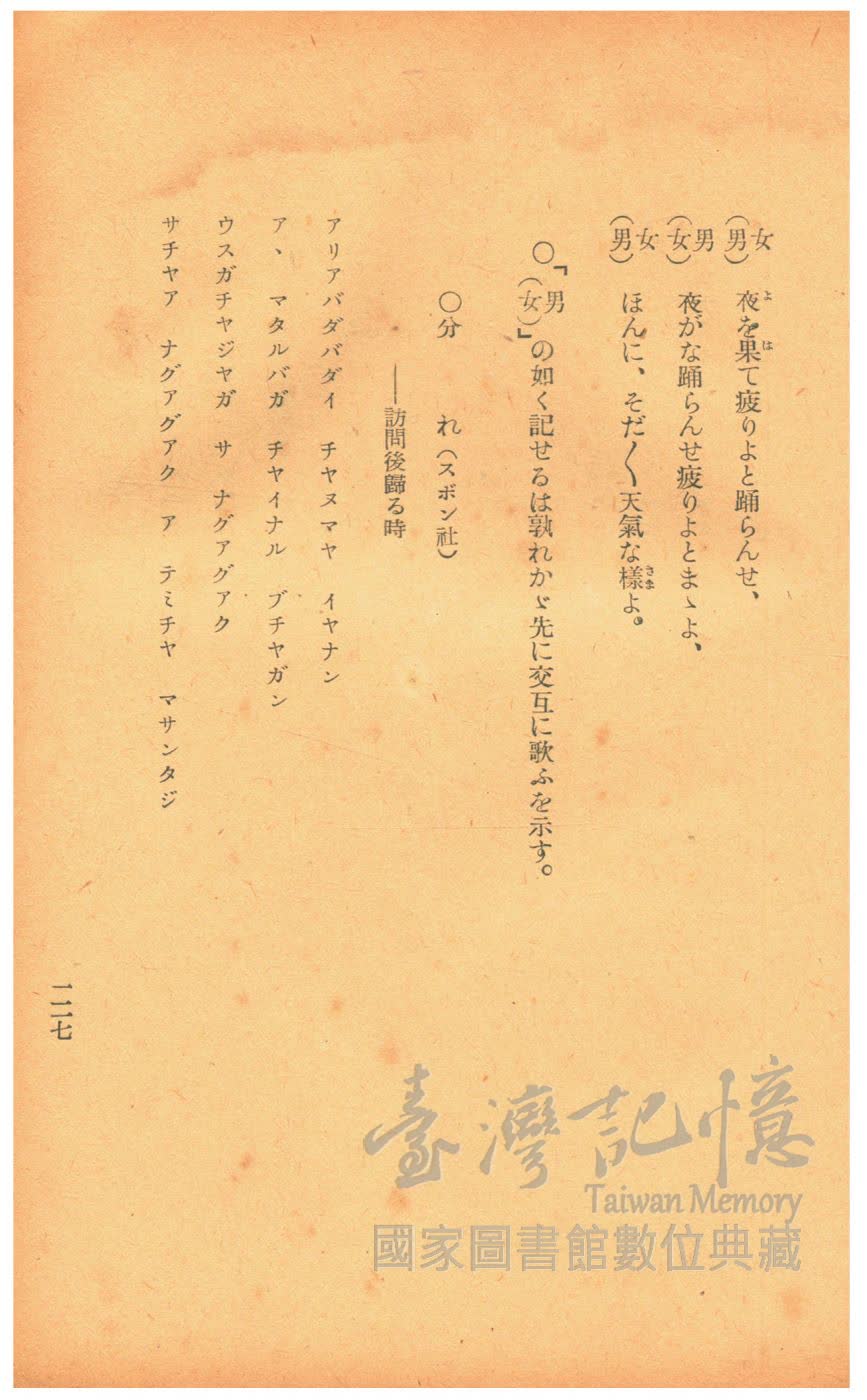 女(男) 夜を果て疲りよと踊らんせ、
男(女) 夜がな踊らんせ疲りよとまゝよ、
女(男) ほんに、そだ〳〵天氣な樣よ。
○「男(女)」の如く記せるは孰れかゞ先に交互に歌ふを示す。
○分れ(スボン社)
――訪問後歸る時
アリアバダバダイ チヤヌマヤ イヤナン
ア、 マタルバガ チヤイナル ブチヤガン
ウスガチヤジヤガ サ ナグアグアク
サチヤア ナグアグアク ア テミチヤ マサンタジ
一一七
臺灣記憶
Taiwan Memory
國家圖書館數位典藏